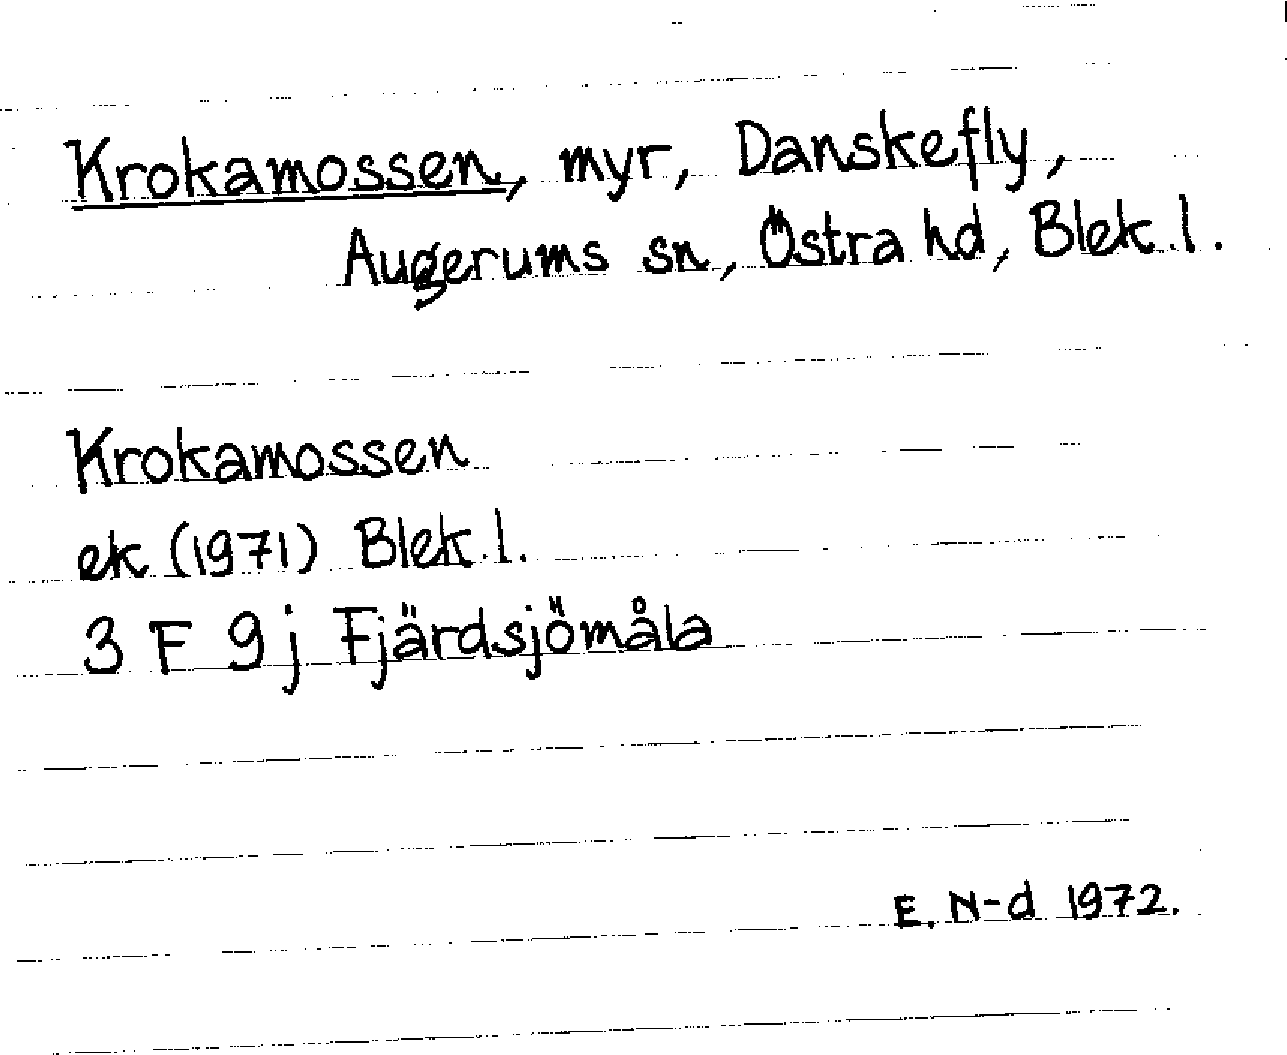 Krokamossen, myr, Danskefly,
Augerums sn, Östra hd, Blek.l.
Krokamossen
ek (1971) Blek.l.
3 F 9j Fjärdsjömåla
E. N-d 1972.